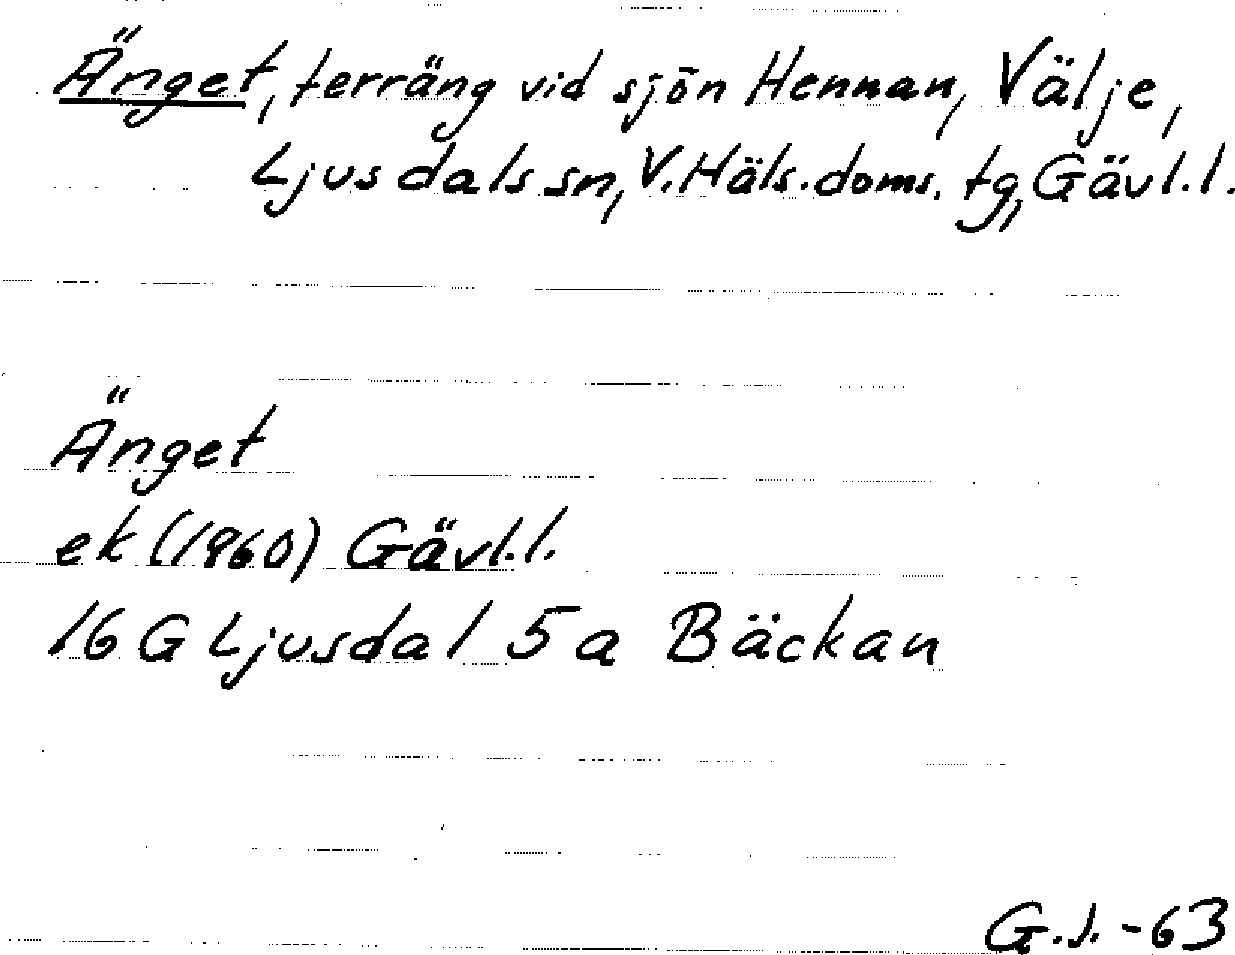 Änget, terräng vid sjön Hennan, Välje,
Ljusdals sn, V. Häls. doms. tg, Gävl. l.
Änget
ek (1960) Gävl. l.
16 G Ljusdal 5 a Bäckan
G.J. -63